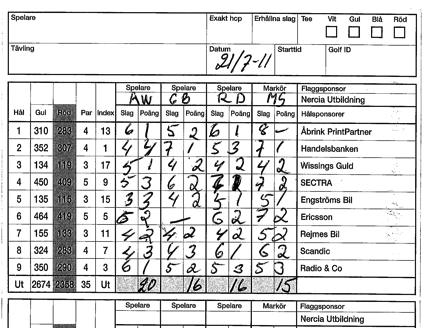 Spelare Exakt hcp Erhållna slag Tee Vit Gul Blå Röd
Tävling Datum Starttid Golf ID
21/7-11
Spelare Spelare Spelare Markör Flaggsponsor
AW GB RD MS Nercia Utbildning
Hål Gul Röd Par Index Slag Poäng Slag Poäng Slag Poäng Slag Poäng Hålsponsorer
1 310 283 4 13 6 1 5 2 6 1 8 – Åbrink PrintPartner
2 352 307 4 1 4 4 7 1 5 3 7 1 Handelsbanken
3 134 119 3 17 5 1 4 2 4 2 4 2 Wissings Guld
4 450 409 5 9 5 3 6 2 7 2 SECTRA
5 135 115 3 15 3 3 4 2 5 1 5 1 Engströms Bil
6 464 419 5 5 6 2 – 6 2 7 2 Ericsson
7 155 133 3 11 4 2 4 2 4 2 5 2 Rejmes Bil
8 324 283 4 7 4 3 4 3 6 1 6 2 Scandic
9 350 290 4 3 6 1 5 2 5 3 5 3 Radio & Co
Ut 2674 2358 35 Ut 20 16 16 15
Spelare Spelare Spelare Markör Flaggsponsor
Nercia Utbildning